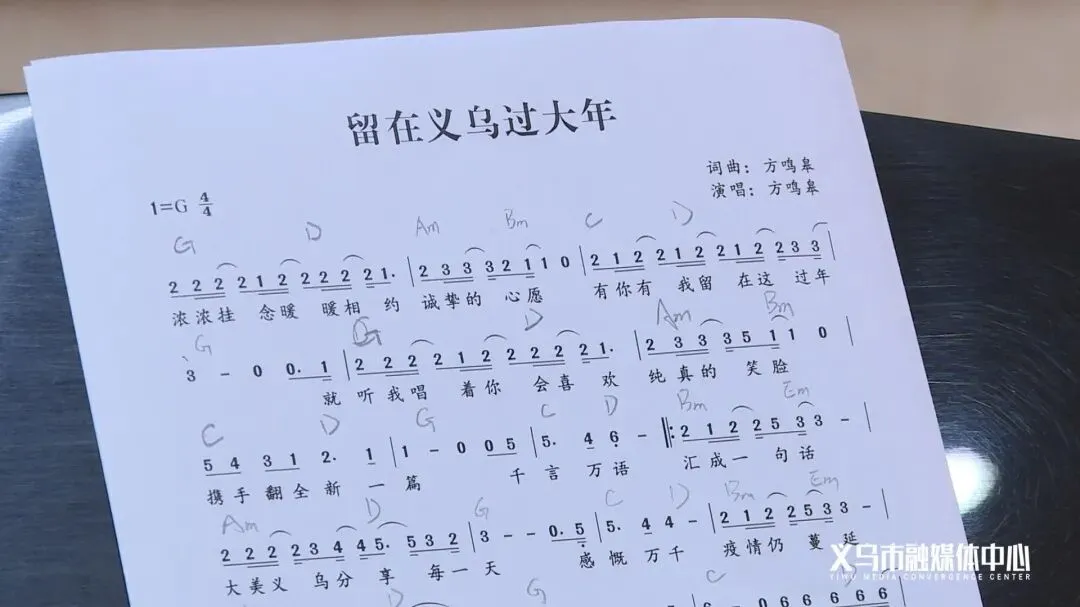 留在义乌过大年
词曲：方鸣皋
演唱：方鸣皋
1=G 4/4
G D Am Bm C D
2 2 2 2 1 2 2 2 2 2 1. | 2 3 3 3 2 1 1 0 | 2 1 2 2 1 2 2 1 2 2 3 3 |
浓浓挂 念暖 暖相 约 诚挚的 心愿 有你有 我留 在这 过年
G G D Am Bm
3 - 0 0. 1 | 2 2 2 2 1 2 2 2 2 2 1. | 2 3 3 3 5 1 1 0 |
就 听我唱 着你 会喜 欢 纯真的 笑脸
C D G C D Bm Em
5 4 3 1 2. 1 | 1 - 0 0 5 | 5. 4 6 - |: 2 1 2 2 5 3 3 - |
携手翻全新 一 篇 千 言 万语 汇成一 句话
Am D G C D Bm Em
2 2 2 2 3 4 4 5. 5 3 2 | 3 - - 0. 5 | 5. 4 4 - | 2 1 2 2 5 3 3 - |
大美义 乌分 享 每一 天 感 慨 万千 疫情仍 蔓 延
D G C
义乌市融媒体中心
YIWU MEDIA CONVERGENCE CENTER